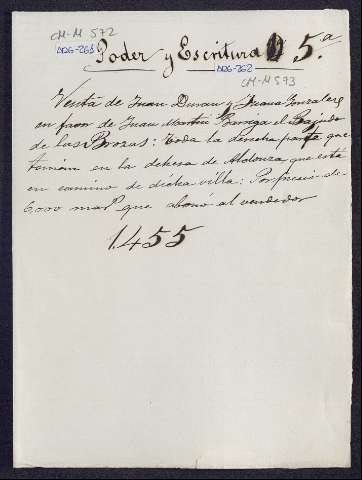 CM-M 572
ADG-261
Poder y Escritura 5.a
ADG-262
CM-M 573
Venta de Juan Duran y Juana Gonzalez
en favor de Juan Martin el
de las Brozas: Toda la derecha parte que
tenian en la dehesa de que está
en camino de dicha villa: Por precio de
6000 mars que abonó al vendedor
1455